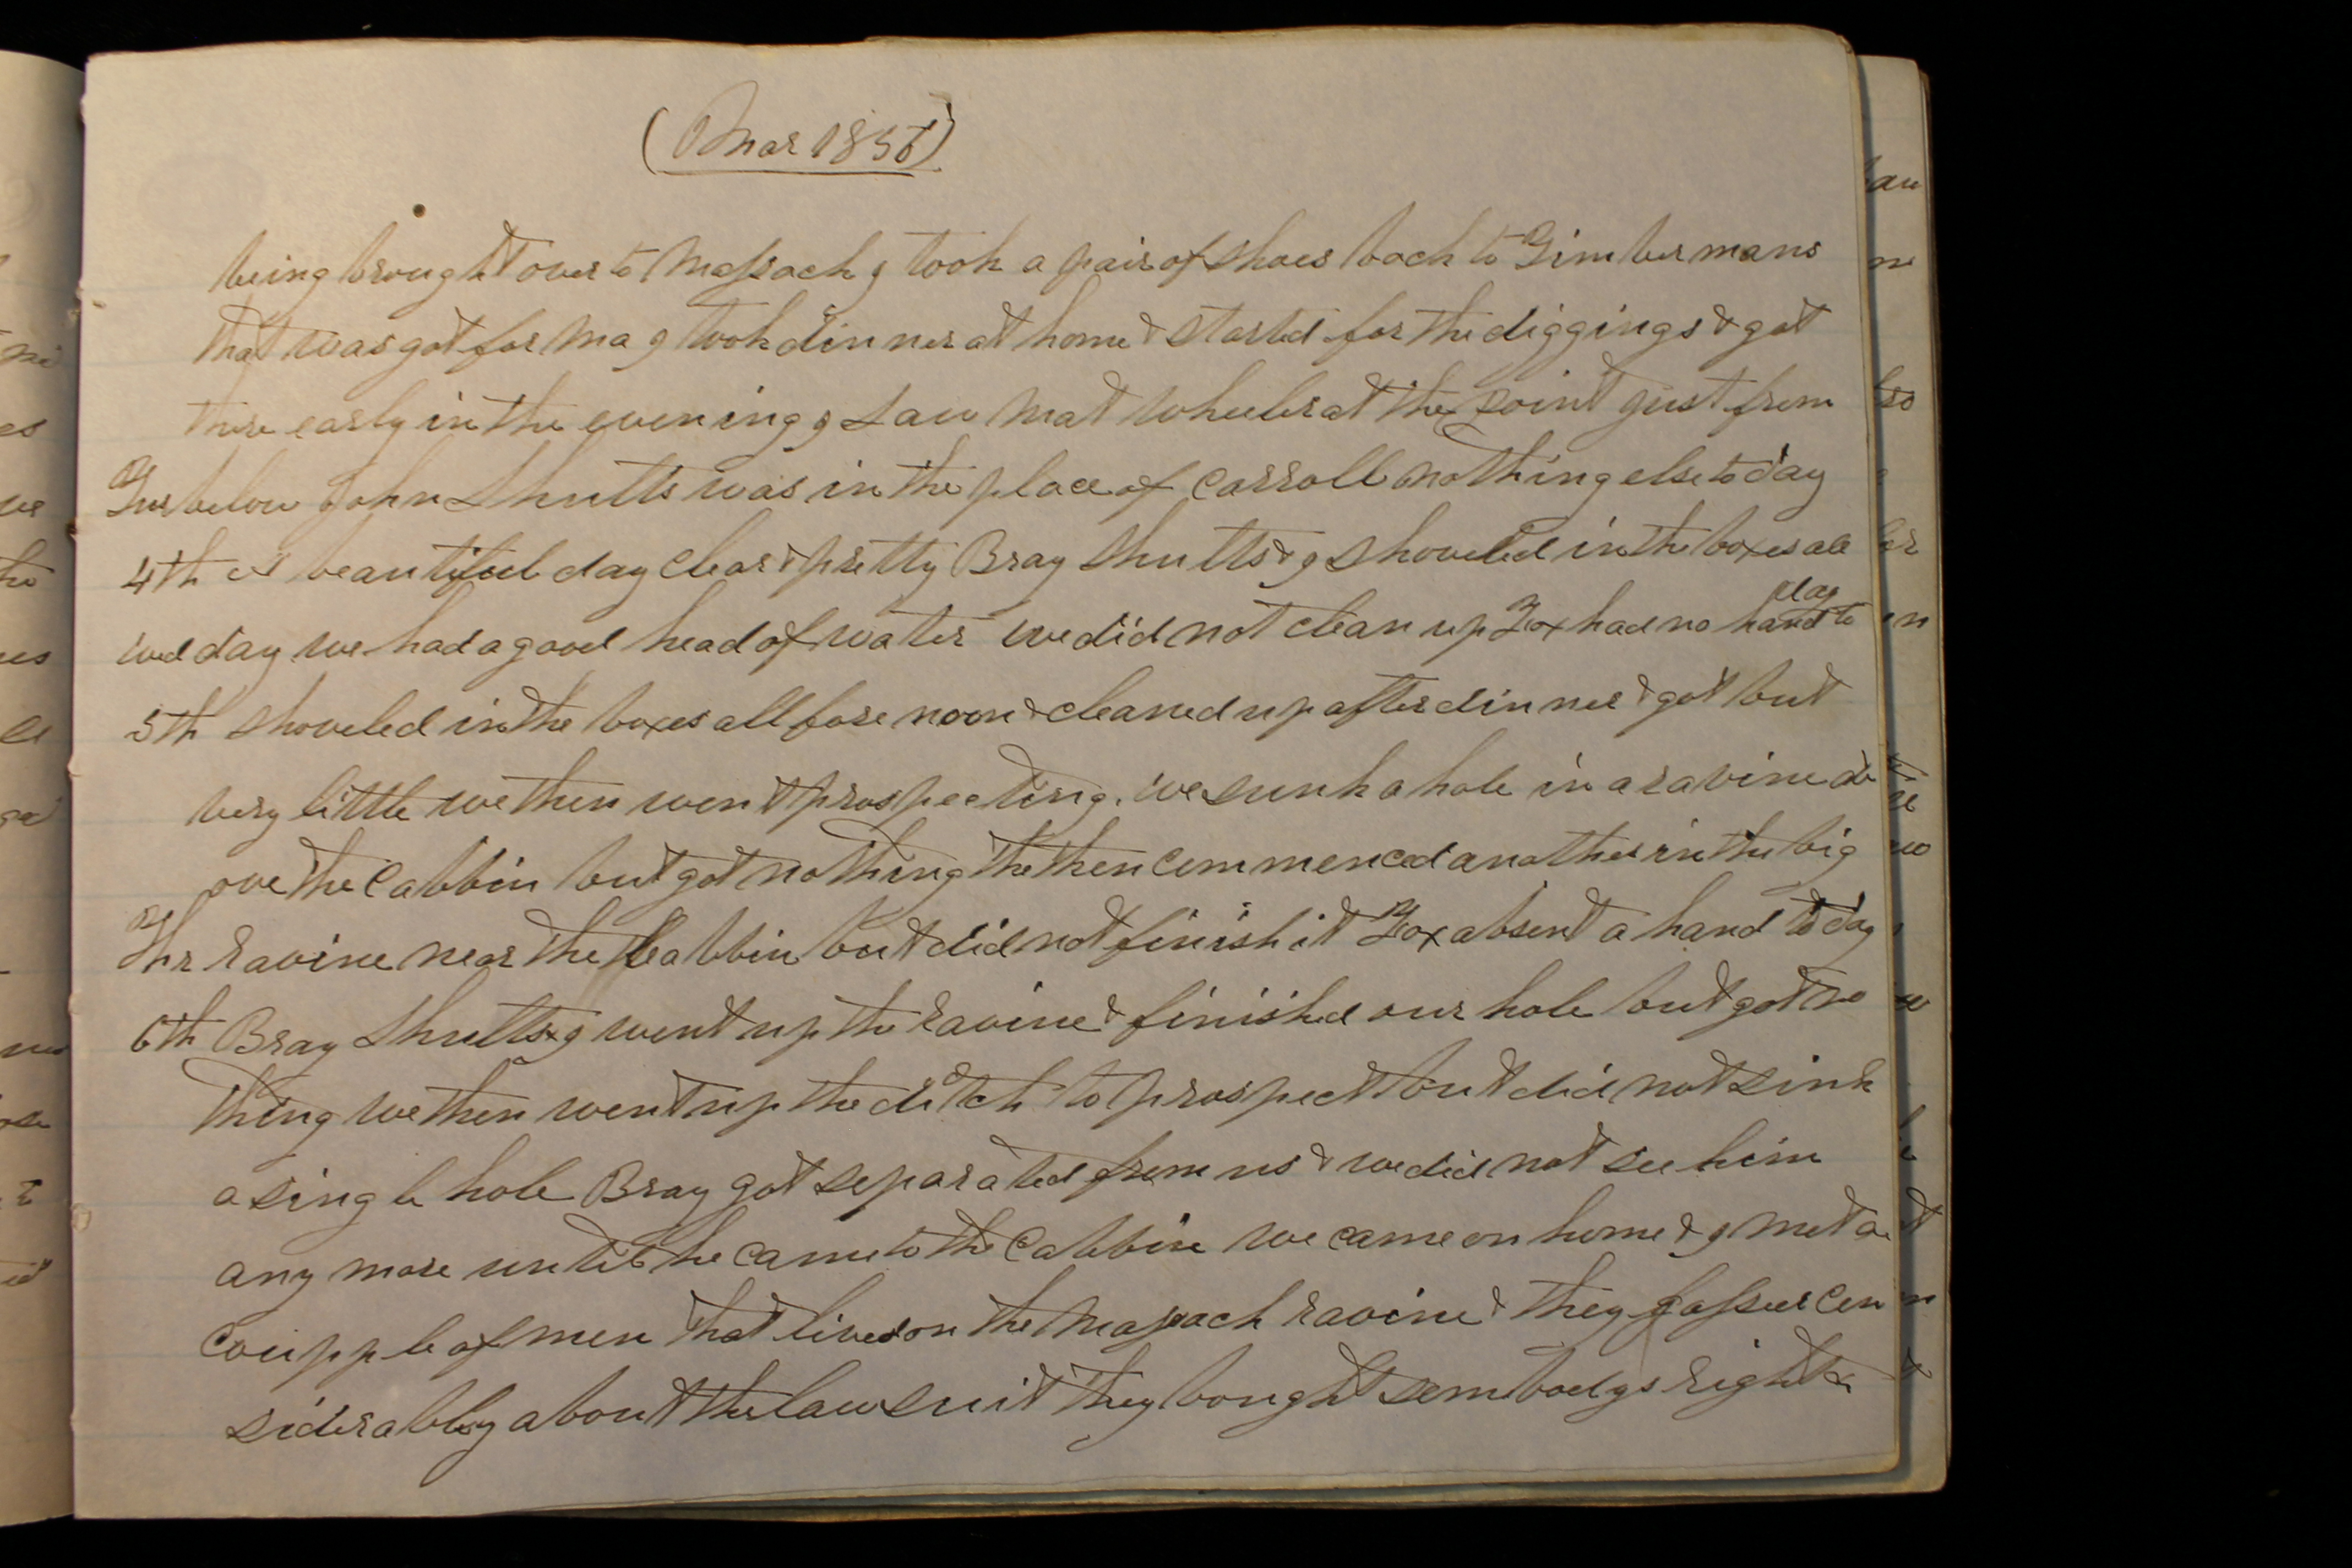 (Mar 1856)
being brought over to Massack I took a pair of shoes back to Timbermans
that was got for Ma I took dinner at home & started for the diggings & got
there early in the evening I saw Mat Wheeler at the point just from
Tues below John Shutts was in the place of Carroll nothing else to day
4th A beautiful day clear & pretty Bray Shutts & I shoveled in the boxes all
wed day we had a good head of water we did not clean up Fox had no hand to day
5th shoveled in the boxes all fore noon & cleaned up after dinner & got but
very little we then went prospecting. we sunk a hole in a ravine ab
ove the Cabbin but got nothing the then commenced another in the big
Thr ravine near the Cabbin but did not finish it Fox absent a hand to day
6th Bray Shutts & I went up the ravine & finished our hole but got no
thing we then went up the ditch to prospect but did not sink
a single hole Bray got separated from us & we did not see him
any more until he came to the Cabbin we came on home & I met a
coupple of men that lived on the Massack ravine & they
siderabley about the law suit they bought sombodys right &